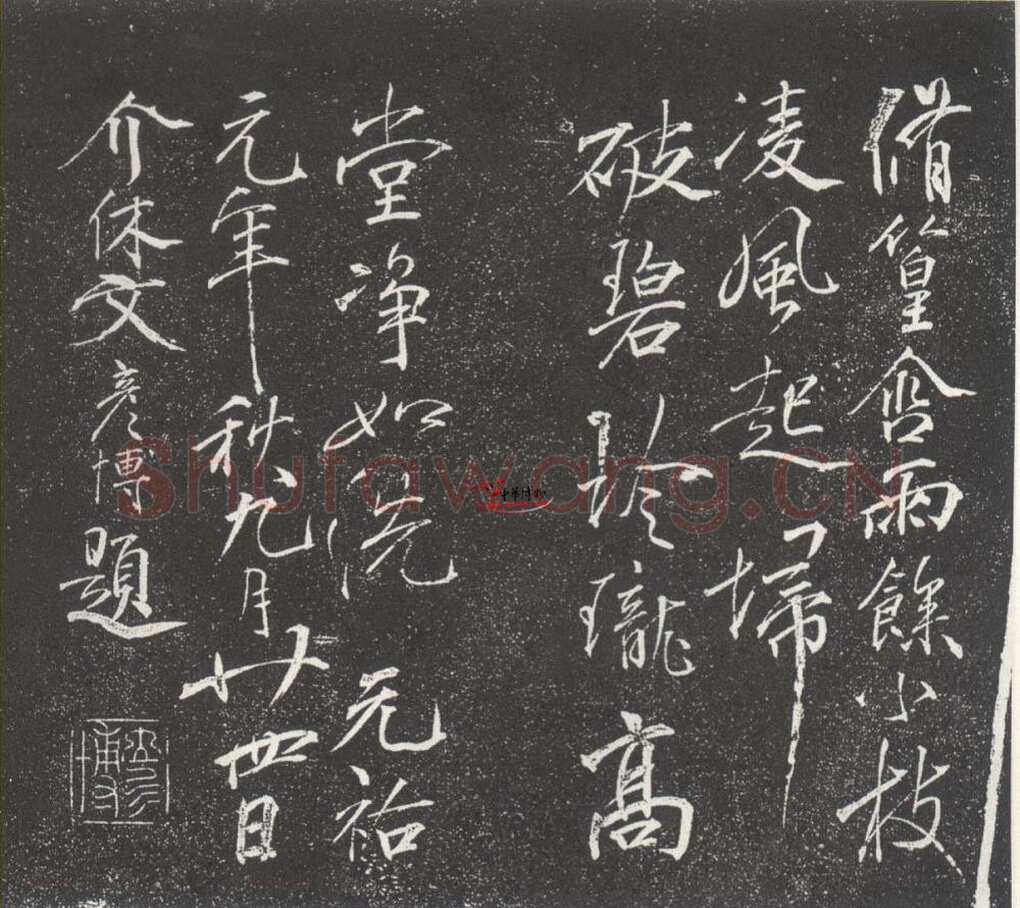 脩篁含雨餘小枝
凌風起埽
破碧玲瓏高
堂净如洗 元祐
元年秋九月廿四日
介休文彦博題
Shufawang.CN